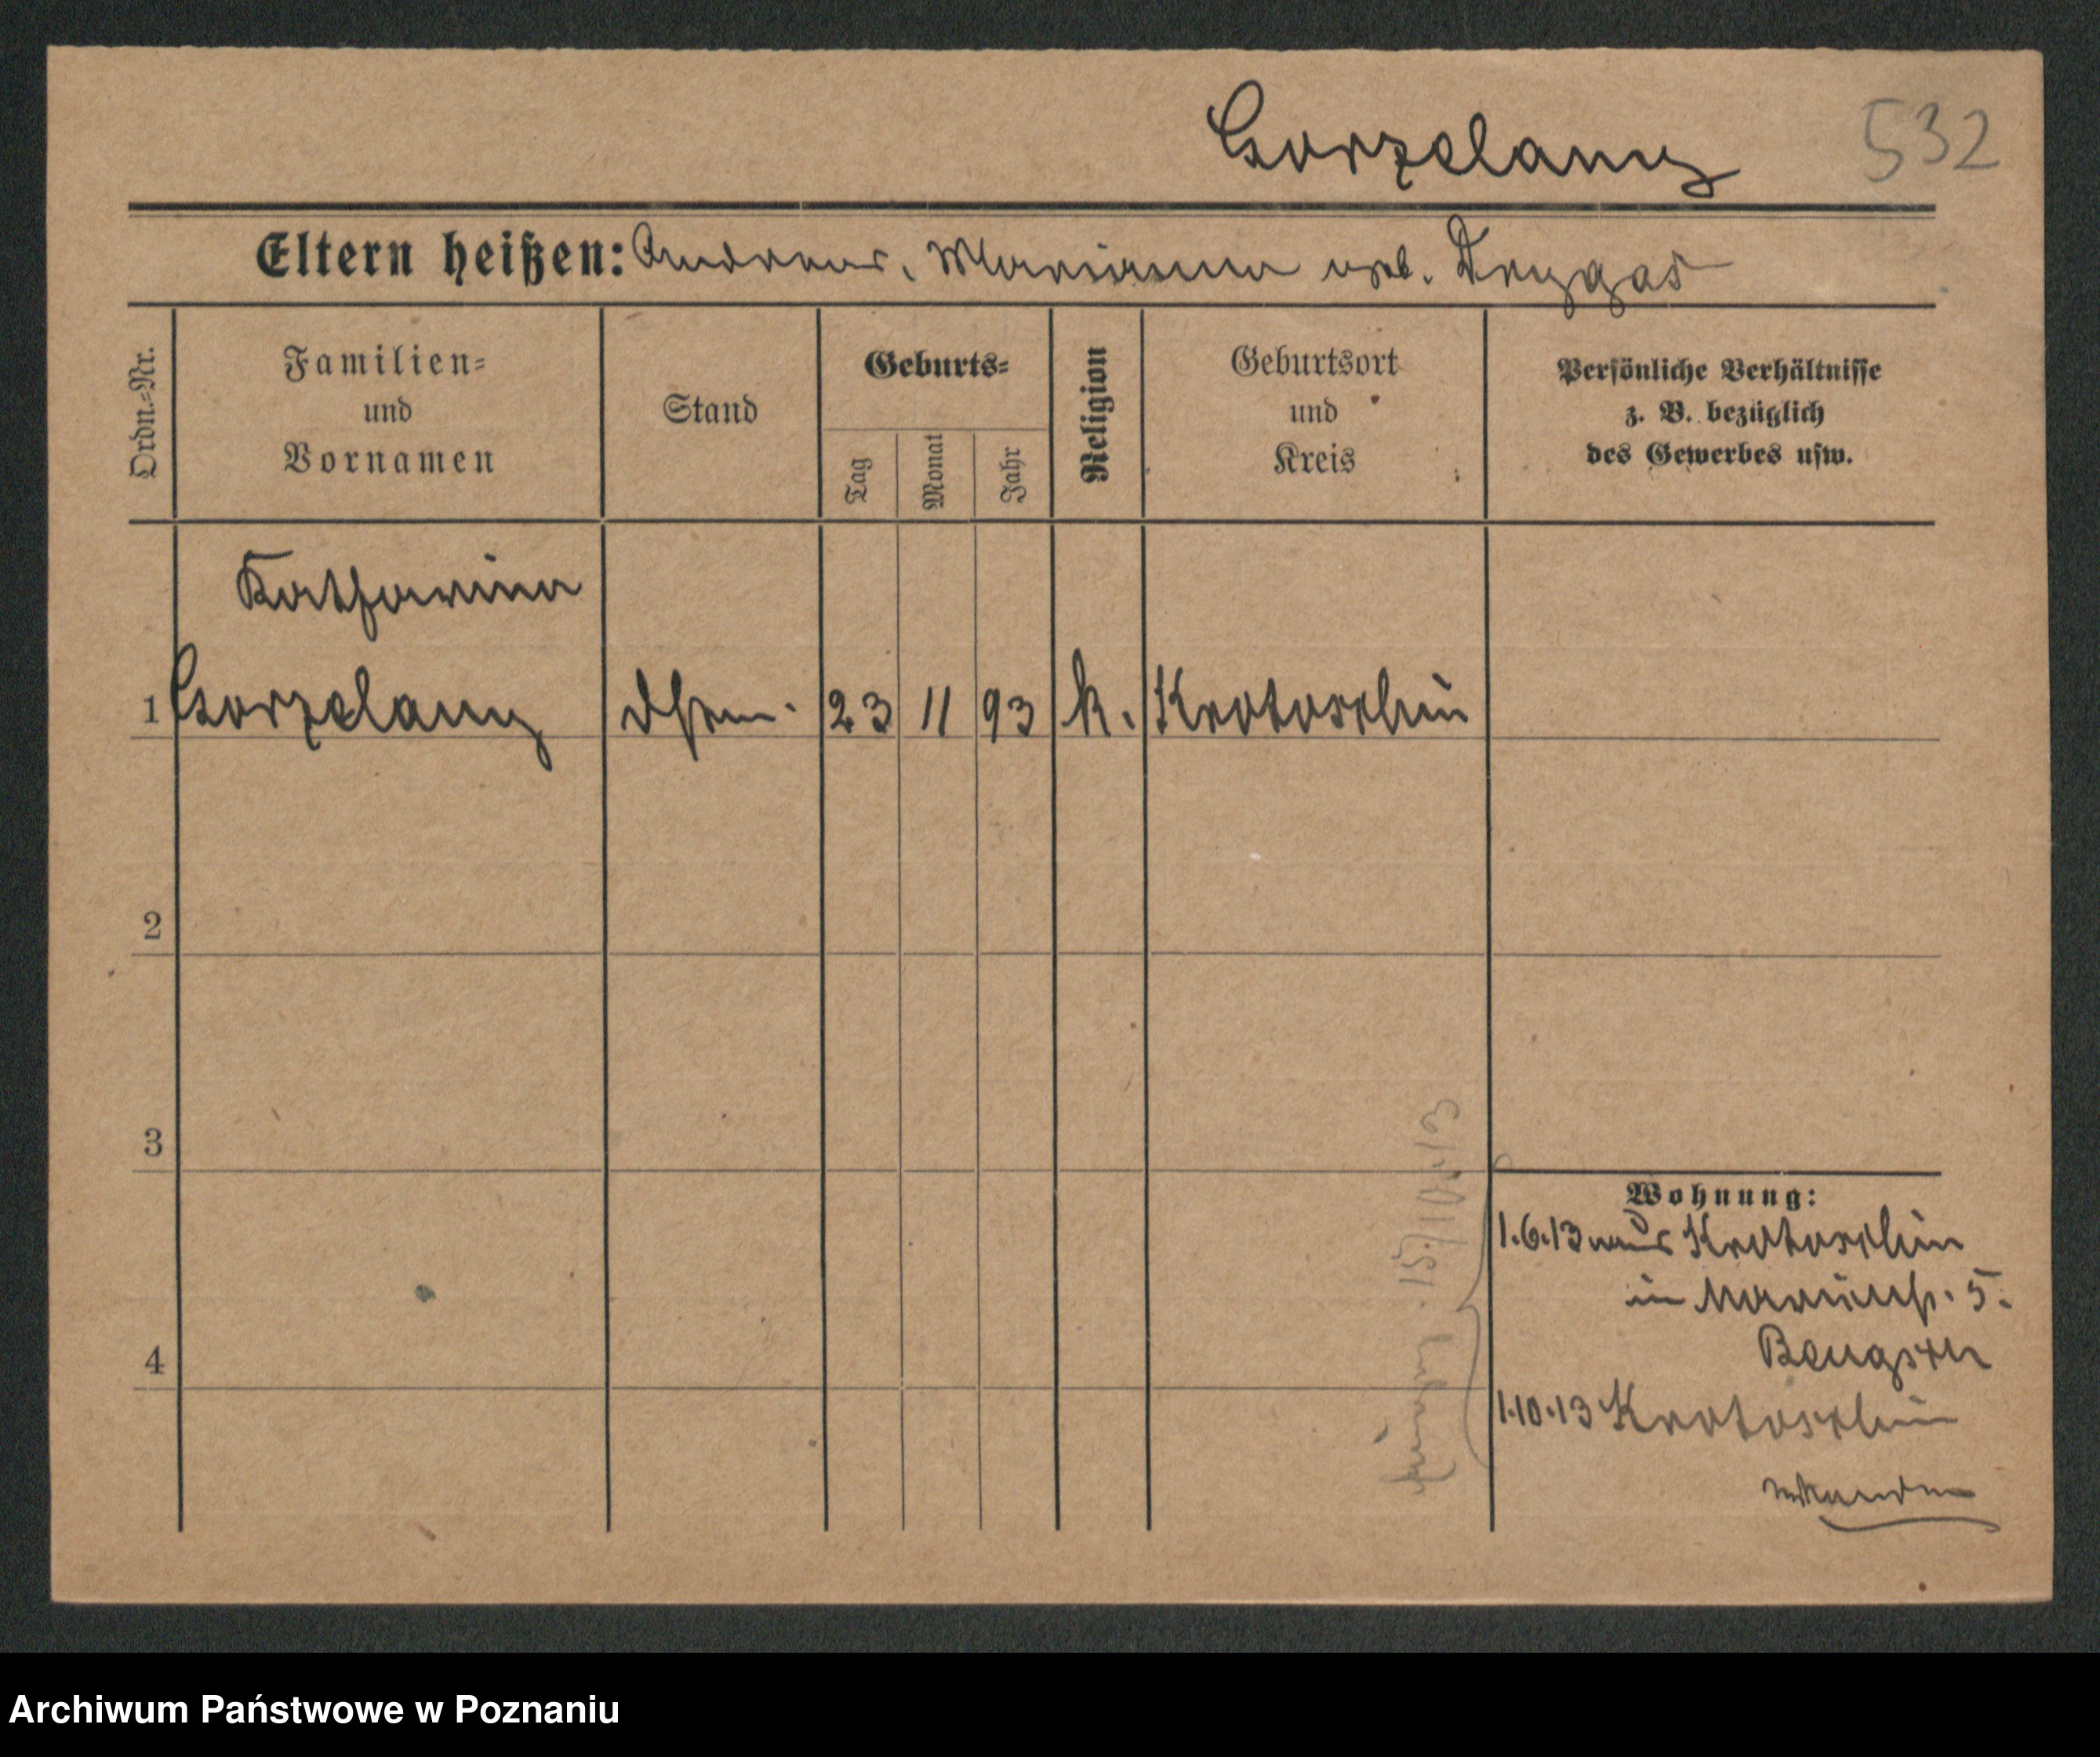 Gorzelany
532
Eltern heißen: Andreas, Marianna geb. Drygas
Ordn.-Nr.
Familien-
und
Vornamen
Stand
Geburts-
Tag
Monat
Jahr
Religion
Geburtsort
und
Kreis
Persönliche Verhältnisse
z. B. bezüglich
des Gewerbes usw.
Katharina
1 Gorzelany 23 11 93 k. Krotoschin
2
3
4
15/10.13
Wohnung:
1.6.13 aus Krotoschin
in 5.
1.10.13 Krotoschin
Archiwum Państwowe w Poznaniu